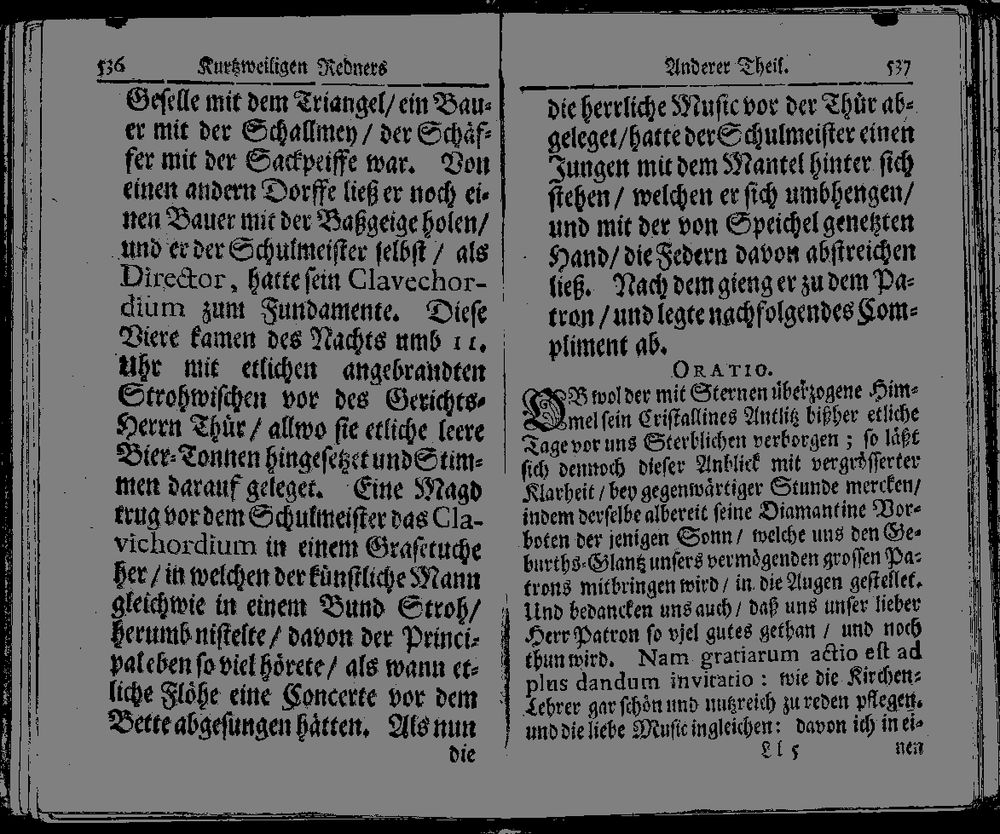 536 Kurtzweiligen Redners
Geselle mit dem Triangel/ ein Bau-
er mit der Schallmey/ der Schäf-
fer mit der Sackpeiffe war. Von
einen andern Dorffe ließ er noch ei-
nen Bauer mit der Baßgeige holen/
und er der Schulmeister selbst/ als
Director, hatte sein Clavechor-
dium zum Fundamente. Diese
Viere kamen des Nachts umb 11.
Uhr mit etlichen angebrandten
Strohwischen vor des Gerichts-
Herrn Thür/ allwo sie etliche leere
Bier-Tonnen hingesetzet und Stim-
men darauf geleget. Eine Magd
trug vor dem Schulmeister das Cla-
vichordium in einem Grasetuche
her/ in welchen der künstliche Mann
gleichwie in einem Bund Stroh/
herumb nistelte/ davon der Princi-
pal eben so viel hörete/ als wann et-
liche Flöhe eine Concerte vor dem
Bette abgesungen hätten. Als nun
die
Anderer Theil. 537
die herrliche Music vor der Thür ab-
geleget/ hatte der Schulmeister einen
Jungen mit dem Mantel hinter sich
stehen/ welchen er sich umbhengen/
und mit der von Speichel genetzten
Hand/ die Federn davon abstreichen
ließ. Nach dem gieng er zu dem Pa-
tron/ und legte nachfolgendes Com-
pliment ab.
ORATIO.
OB wol der mit Sternen überzogene Him-
mel sein Cristallines Antlitz bißher etliche
Tage vor uns Sterblichen verborgen; so läßt
sich dennoch dieser Anblick mit vergrösserter
Klarheit/ bey gegenwärtiger Stunde mercken/
indem derselbe albereit seine Diamantine Vor-
boten der jenigen Sonn/ welche uns den Ge-
burths-Glantz unsers vermögenden grossen Pa-
trons mitbringen wird/ in die Augen gestellet.
Und bedancken uns auch/ daß uns unser lieber
Herr Patron so viel gutes gethan/ und noch
thun wird. Nam gratiarum actio est ad
plus dandum invitatio: wie die Kirchen-
Lehrer gar schön und nutzreich zu reden pflegen.
und die liebe Music ingleichen: davon ich in ei-
Ll 5 nen